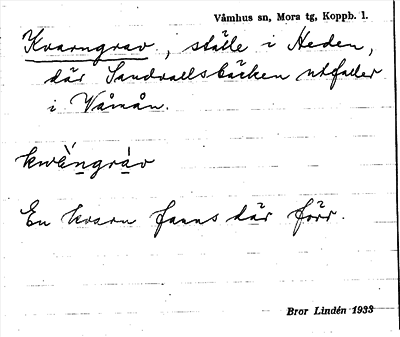 Våmhus sn, Mora tg, Koppb. l.
Kvarngrav, ställe i Heden,
där Sandvallsbäcken utfaller
i Våmån.
kwèngràv
En kvarn fanns där förr.
Bror Lindén 1933